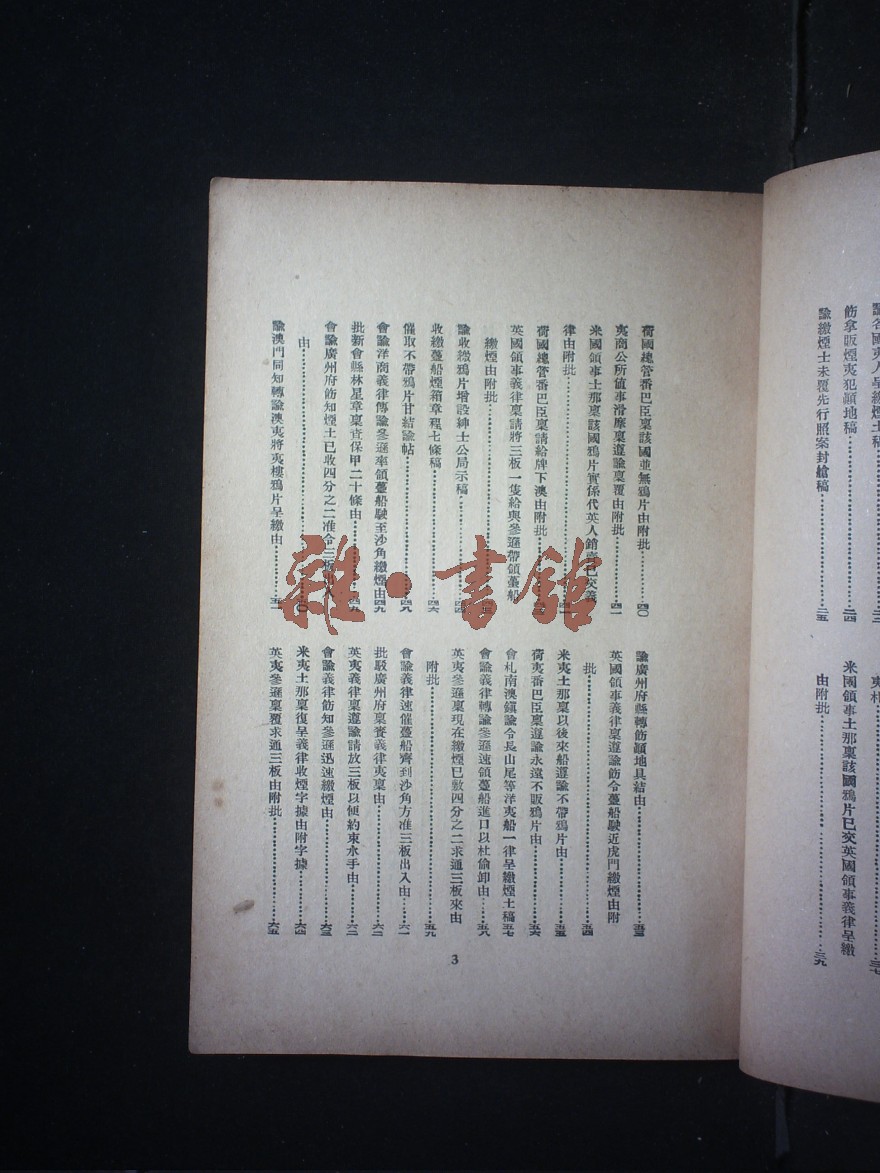 諭各國夷人呈繳煙土稿……二三
飭拿販煙夷犯顛地稿……二四
諭繳煙土未覆先行照案封艙稿……二五
三七
米國領事士那稟該國鴉片已交英國領事義律呈繳
由附批……三九
荷國總管番巴臣稟該國並無鴉片由附批……四〇
夷商公所値事滑摩稟遵諭稟覆由附批……四一
米國領事士那稟該國鴉片實係代英人銷賣已交義
律由附批……
荷國總管番巴臣稟請給牌下澳由附批……
英國領事義律稟請將三板一隻給與參遜帶領躉船
繳煙由附批……
諭收繳鴉片增設紳士公局示稿……四四
收繳躉船煙箱章程七條稿……四六
催取不帶鴉片甘結諭帖……四八
會諭洋商義律傳諭參遜率領躉船駛至沙角繳煙由四九
批新會縣林星章稟查保甲二十條由……四九
會諭廣州府飭知煙土已收四分之二准令三板出入
由……五〇
諭澳門同知轉諭澳夷將夷樓鴉片呈繳由……五一
諭廣州府縣轉飭顛地具結由……五三
英國領事義律稟遵諭飭令躉船駛近虎門繳煙由附
批……五四
米夷士那稟以後來船遵諭不帶鴉片由……五五
荷夷番巴臣稟遵諭永遠不販鴉片由……五六
會札南澳鎭諭令長山尾等洋夷船一律呈繳煙土稿五七
會諭義律轉諭參遜速領躉船進口以杜偷卸由……五八
英夷參遜稟現在繳煙已數四分之二求通三板來由
附批……五九
會諭義律速催躉船齊到沙角方准三板出入由……六一
批駁廣州府稟賫義律夷稟由……六二
英夷義律稟遵諭請放三板以便約束水手由……六二
會諭義律飭知參遜迅速繳煙由……六三
米夷士那稟復呈義律收煙字據由附字據……六四
英夷參遜稟覆求通三板由附批……六五
3
雜·書館